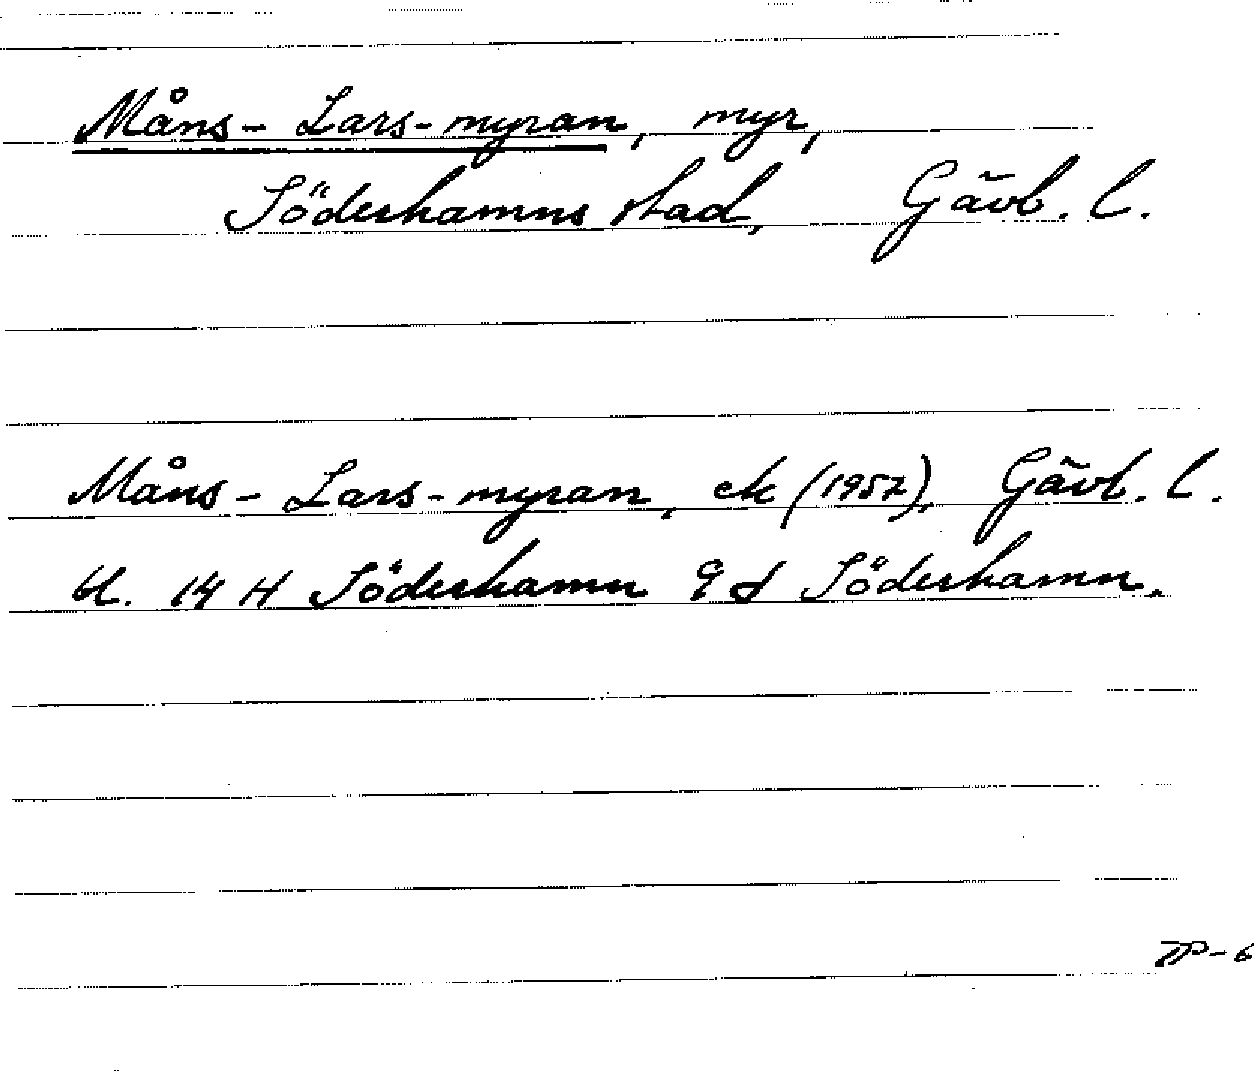 Måns-Lars-myran, myr,
Söderhamns stad, Gävb. l.
Måns-Lars-myran, ek (1957), Gävl. l.
bl. 14 H Söderhamn 9 d Söderhamn.